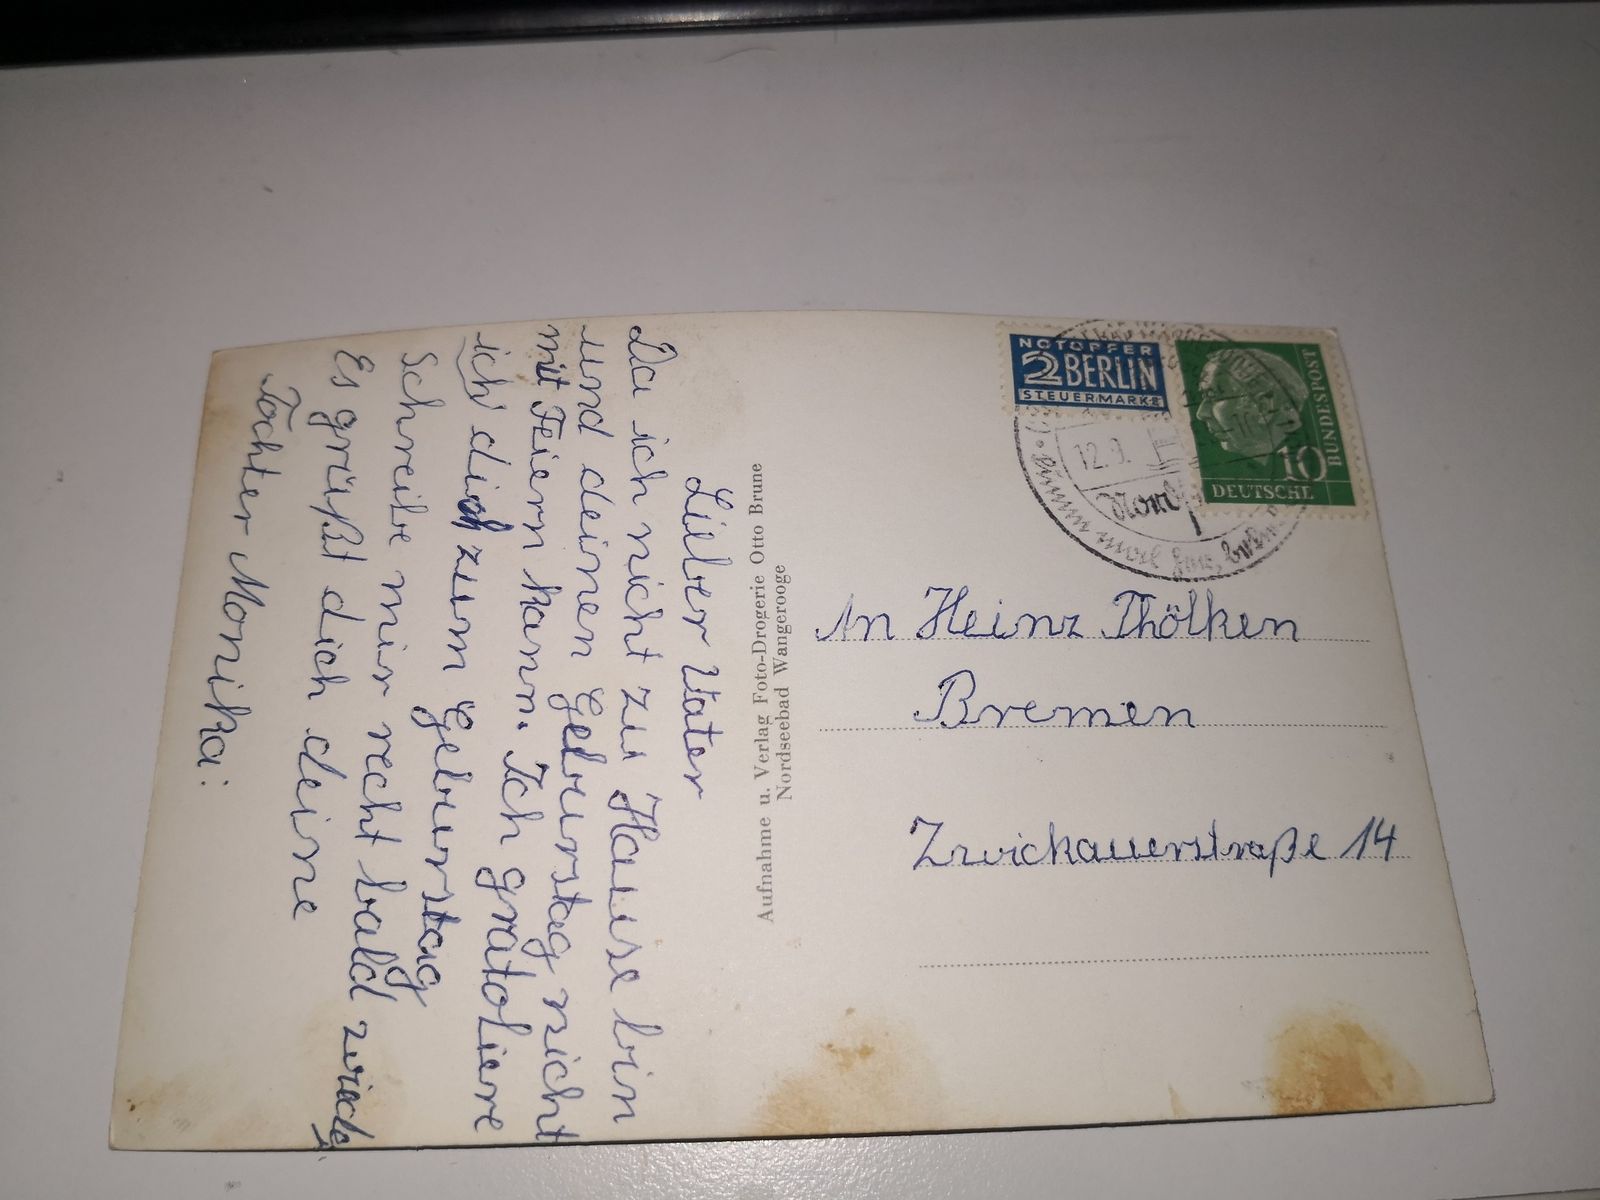 Lieber Vater
Da ich nicht zu Hause bin
und deinen Geburstag nicht
mit Feiern kann. Ich gratoliere
ich dich zum Geburstag
Schreibe mir recht bald
Es grüßt dich deine
Tochter Monika.
Aufnahme u. Verlag Foto-Drogerie Otto Brune
Nordseebad Wangerooge
NOTOPFER
2 BERLIN
STEUERMARKE
10
DEUTSCHE
BUNDESPOST
12.9.
An Heinz Thölken
Bremen
Zwickauerstraße 14